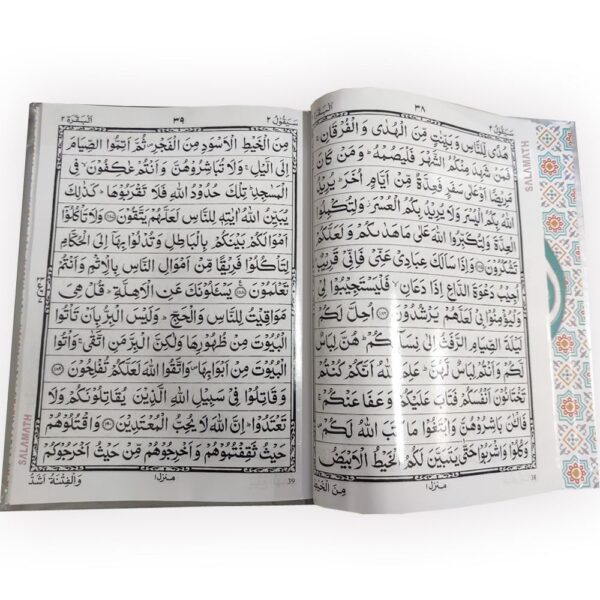 سَيَقُوْل ٢ ٣٨ اَلْبَقَرَة ٢
هُدًى لِّلنَّاسِ وَ بَيِّنٰتٍ مِّنَ الْهُدٰى وَ الْفُرْقَانِ ۚ
فَمَنْ شَهِدَ مِنْكُمُ الشَّهْرَ فَلْيَصُمْهُ ؕ وَمَنْ كَانَ
مَرِيْضًا اَوْ عَلٰى سَفَرٍ فَعِدَّةٌ مِّنْ اَيَّامٍ اُخَرَ ؕ يُرِيْدُ
اللّٰهُ بِكُمُ الْيُسْرَ وَلَا يُرِيْدُ بِكُمُ الْعُسْرَ ؗ وَلِتُكْمِلُوا
الْعِدَّةَ وَلِتُكَبِّرُوا اللّٰهَ عَلٰى مَا هَدٰىكُمْ وَ لَعَلَّكُمْ
تَشْكُرُوْنَ ﴿۱۸۵﴾ وَاِذَا سَاَلَكَ عِبَادِىْ عَنِّىْ فَاِنِّىْ قَرِيْبٌ ؕ
اُجِيْبُ دَعْوَةَ الدَّاعِ اِذَا دَعَانِ ۙ فَلْيَسْتَجِيْبُوْا لِىْ
وَلْيُؤْمِنُوْا بِىْ لَعَلَّهُمْ يَرْشُدُوْنَ ﴿۱۸۶﴾ اُحِلَّ لَكُمْ
لَيْلَةَ الصِّيَامِ الرَّفَثُ اِلٰى نِسَآئِكُمْ ؕ هُنَّ لِبَاسٌ
لَّكُمْ وَاَنْتُمْ لِبَاسٌ لَّهُنَّ ؕ عَلِمَ اللّٰهُ اَنَّكُمْ كُنْتُمْ
تَخْتَانُوْنَ اَنْفُسَكُمْ فَتَابَ عَلَيْكُمْ وَعَفَا عَنْكُمْ ۚ
فَالْـٰٔنَ بَاشِرُوْهُنَّ وَابْتَغُوْا مَا كَتَبَ اللّٰهُ لَكُمْ ۪
وَكُلُوْا وَاشْرَبُوْا حَتّٰى يَتَبَيَّنَ لَكُمُ الْخَيْطُ الْاَبْيَضُ
منزل ١
مِنَ الْخَيْطِ
SALAMATH
سَيَقُوْل ٢ ٣٩ اَلْبَقَرَة ٢
مِنَ الْخَيْطِ الْاَسْوَدِ مِنَ الْفَجْرِ ۪ ثُمَّ اَتِمُّوا الصِّيَامَ
اِلَى الَّيْلِ ۚ وَلَا تُبَاشِرُوْهُنَّ وَاَنْتُمْ عٰكِفُوْنَ ۙ فِى
الْمَسٰجِدِ ؕ تِلْكَ حُدُوْدُ اللّٰهِ فَلَا تَقْرَبُوْهَا ؕ كَذٰلِكَ
يُبَيِّنُ اللّٰهُ اٰيٰتِهٖ لِلنَّاسِ لَعَلَّهُمْ يَتَّقُوْنَ ﴿۱۸۷﴾ وَلَا تَاْكُلُوْٓا
اَمْوَالَكُمْ بَيْنَكُمْ بِالْبَاطِلِ وَتُدْلُوْا بِهَآ اِلَى الْحُكَّامِ
لِتَاْكُلُوْا فَرِيْقًا مِّنْ اَمْوَالِ النَّاسِ بِالْاِثْمِ وَاَنْتُمْ
تَعْلَمُوْنَ ﴿۱۸۸﴾ يَسْـَٔلُوْنَكَ عَنِ الْاَهِلَّةِ ؕ قُلْ هِىَ
مَوَاقِيْتُ لِلنَّاسِ وَالْحَجِّ ؕ وَلَيْسَ الْبِرُّ بِاَنْ تَاْتُوا
الْبُيُوْتَ مِنْ ظُهُوْرِهَا وَلٰكِنَّ الْبِرَّ مَنِ اتَّقٰى ۚ وَاْتُوا
الْبُيُوْتَ مِنْ اَبْوَابِهَا ۪ وَاتَّقُوا اللّٰهَ لَعَلَّكُمْ تُفْلِحُوْنَ ﴿۱۸۹﴾
وَ قَاتِلُوْا فِىْ سَبِيْلِ اللّٰهِ الَّذِيْنَ يُقَاتِلُوْنَكُمْ وَلَا
تَعْتَدُوْا ؕ اِنَّ اللّٰهَ لَا يُحِبُّ الْمُعْتَدِيْنَ ﴿۱۹۰﴾ وَاقْتُلُوْهُمْ
حَيْثُ ثَقِفْتُمُوْهُمْ وَاَخْرِجُوْهُمْ مِّنْ حَيْثُ اَخْرَجُوْكُمْ
منزل ١
وَالْفِتْنَةُ اَشَدُّ
39
SALAMATH